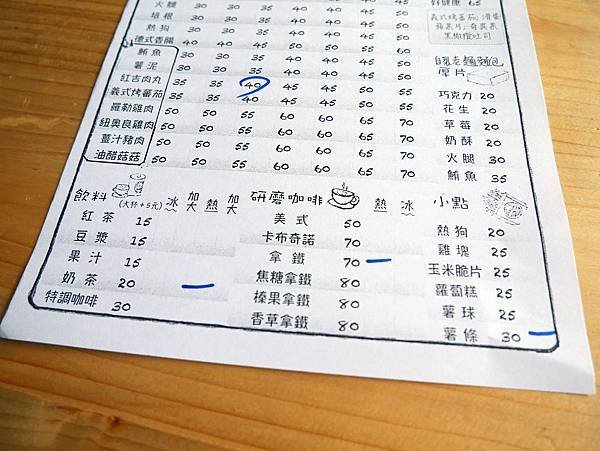 火腿 30 30 35 40 40 40 45
培根 30 30 35 40 40 40 45
熱狗 30 30 35 40 40 40 45
德式香腸 40 40 45 50 50 55 60
鮪魚 30 30 35 40 40 40 45
薯泥 30 30 35 40 40 40 45
紅吉肉丸 35 35 40 45 45 50 55
義式烤蕃茄 35 35 40 45 45 50 55
羅勒雞肉 50 50 55 60 60 65 70
紐奧良雞肉 50 50 55 60 60 65 70
薑汁豬肉 50 50 55 60 60 65 70
油醋菇菇 50 50 55 60 60 65 70
好健康 65
義式烤蕃茄,滑蛋
蘋果片,奇異果
黑橄欖吐司
自製老麵麵包
厚片
巧克力 20
花生 20
草莓 20
奶酥 20
火腿 30
鮪魚 35
飲料 (大杯+5元) 冰 加大 熱 加大
紅茶 15
豆漿 15
果汁 15
奶茶 20
特調咖啡 30
研磨咖啡 熱 冰
美式 50
卡布奇諾 70
拿鐵 70
焦糖拿鐵 80
榛果拿鐵 80
香草拿鐵 80
小點
熱狗 20
雞塊 25
玉米脆片 25
蘿蔔糕 25
薯球 25
薯條 30